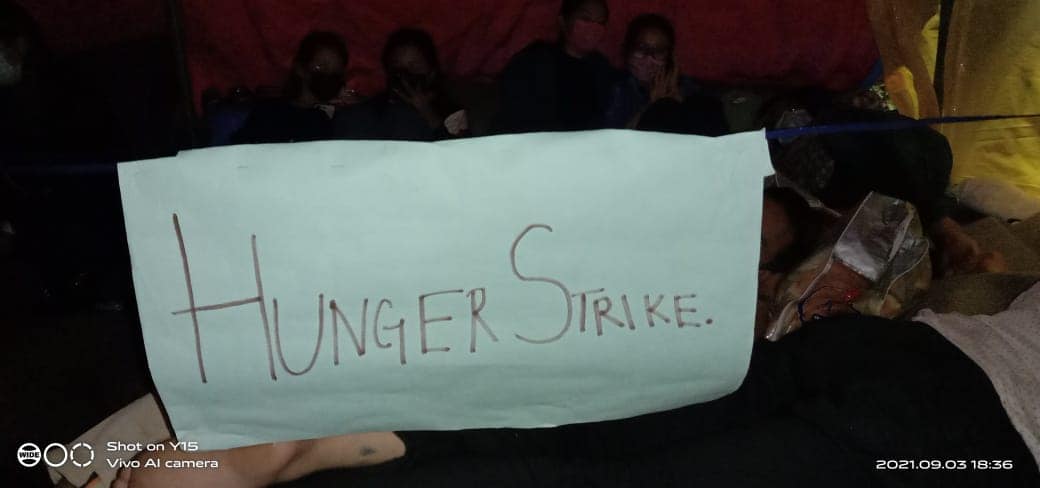 HUNGER STRIKE.
WIDE
Shot on Y15
Vivo AI camera
2021.09.03 18:36